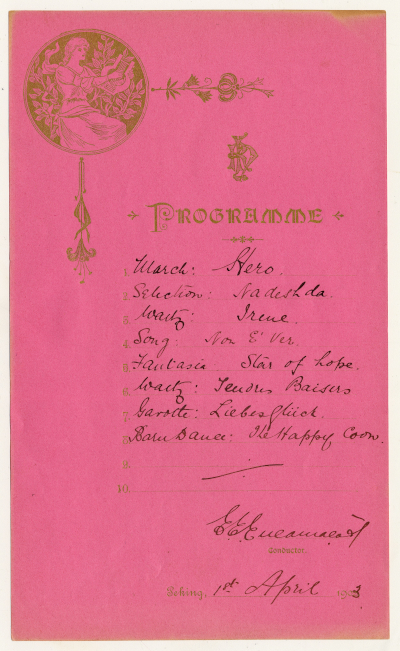 PROGRAMME
1. March: Hero.
2. Selection: Nadeshda.
3. Waltz: Irene.
4. Song: Non E' Ver.
5. Fantasia Star of hope.
6. Waltz: Tendres Baisers
7. Gavotte: Liebesglück.
8. Barn Dance: The Happy Coon.
9.
10.
Conductor.
Peking, 1st April 1903